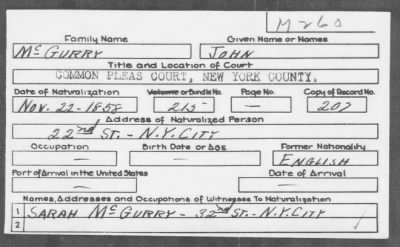 M260
Family Name Given Name or Names
McGURRY JOHN
Title and Location of Court
COMMON PLEAS COURT, NEW YORK COUNTY.
Date of Naturalization Volume or Bundle No. Page No. Copy of Record No.
Nov. 22-1858 215 — 207
Address of Naturalized Person
22nd ST. - N.Y. CITY
Occupation Birth Date or Age Former Nationality
— — ENGLISH
Port of Arrival in the United States Date of Arrival
— —
Names, Addresses and Occupations of Witnesses To Naturalization
1 SARAH McGURRY - 32nd ST. - N.Y. CITY
2